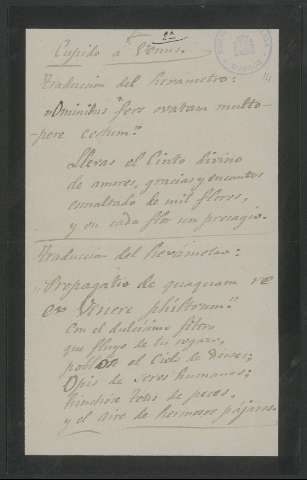 Cupido a Venus.
Traducción del hexámetro:
"Ominibus fere ovatam multo-
pere cestum."
Llevas el Cinto divino
de amores, gracias y encantos
esmaltado de mil flores,
y en cada flor un presagio.
Traducción del hexámetro:
Propagatio de quaquam re
ex Venere philtrorum."
Con el dulcísimo filtro
que fluye de tu regazo,
poblar el Cielo de Dioses;
Opis de seres humanos;
henchir Tetis de peces,
y el aire de hermosos pájaros.